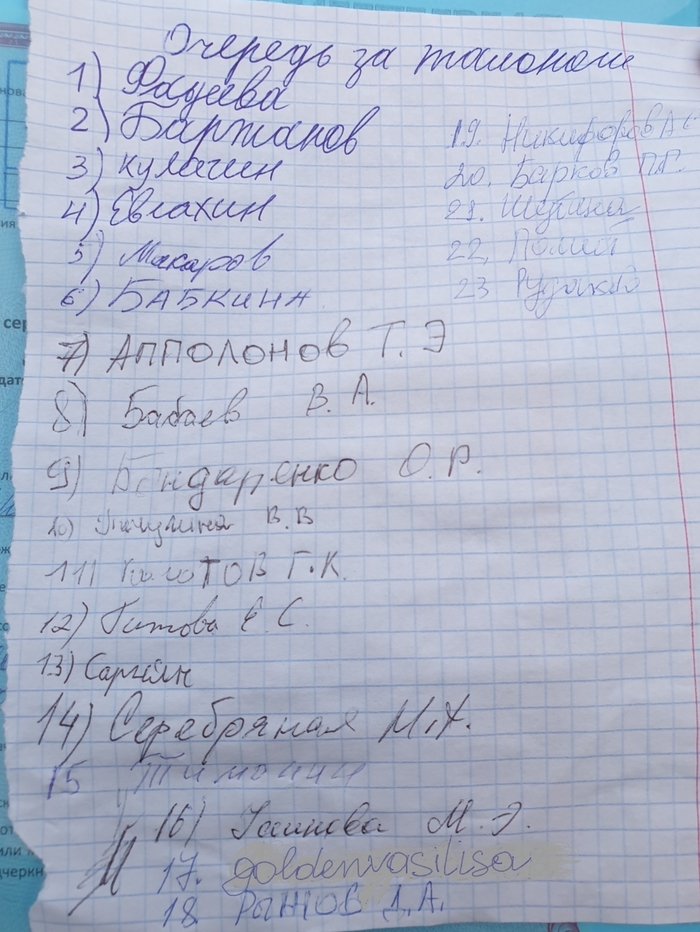 Очередь за талоном
1) Фадеева
2) Баржанов
3) Кулачин
4) Евлахин
5) Макаров
6) БАБКИНА
7) АППОЛОНОВ Т. Э
8) Бабаев В. А.
9) Бондаренко О. Р.
10) В.В
11) Г.К.
12) Титова Е. С.
13) Саргсян
14) Серебряная М.Х.
15 Тимонин
16) М. Э.
17. goldenvasilisa
18 РЫЖОВ Д.А.
19. Никифоров А
20. Барков П.Г.
21.
22.
23 Рудский